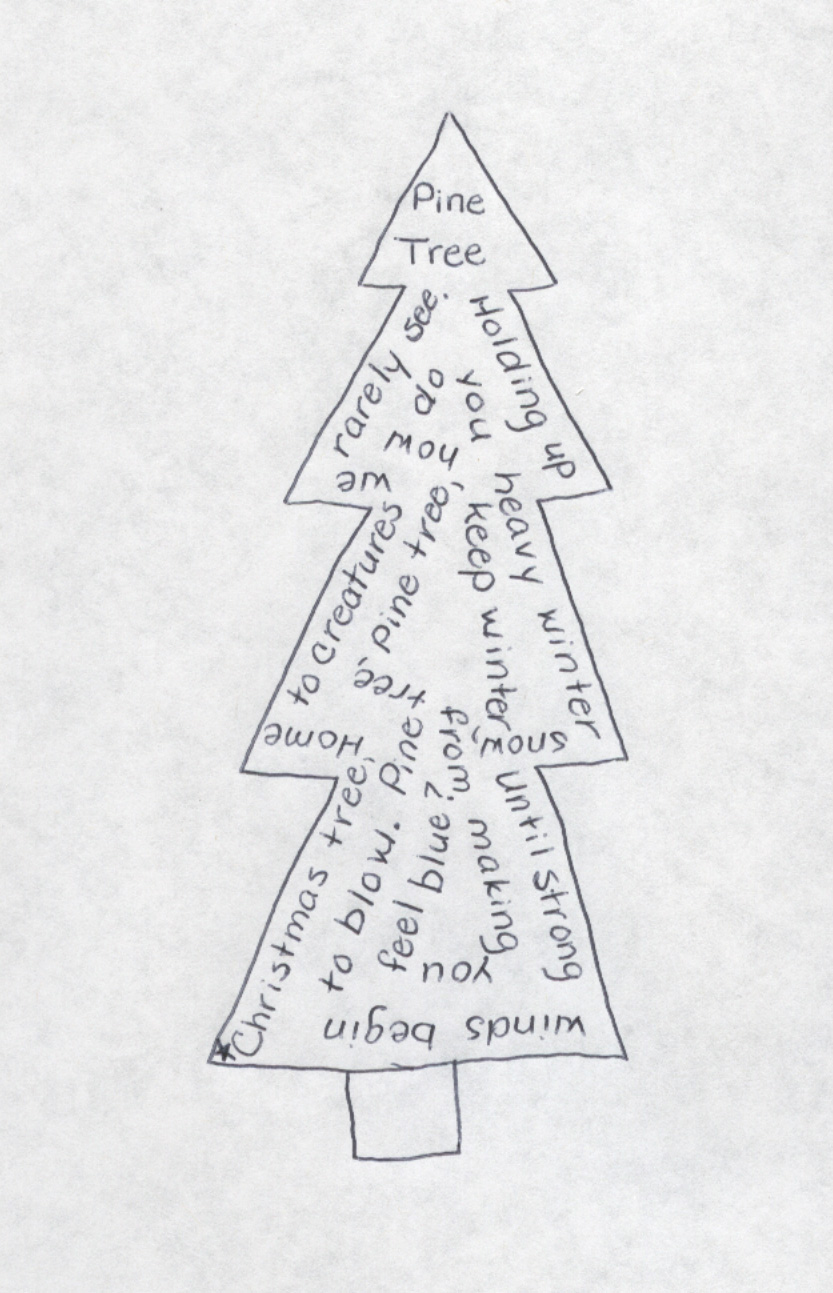 Pine
Tree
*Christmas tree,
Home
to creatures
we
rarely see.
Holding up
heavy winter
snow,
until strong
winds begin
to blow. Pine
tree,
Pine tree,
how
do
you
keep winter
from making
you
feel blue?